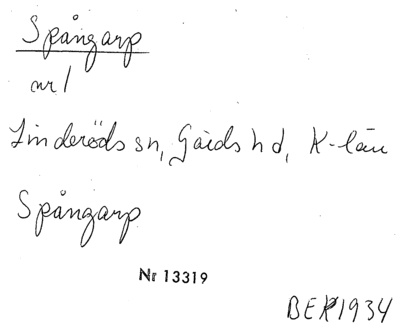 Spångarp
nr 1
Linderöds sn, Gärds hd, K-län
Spångarp
Nr 13319
BEK 1934